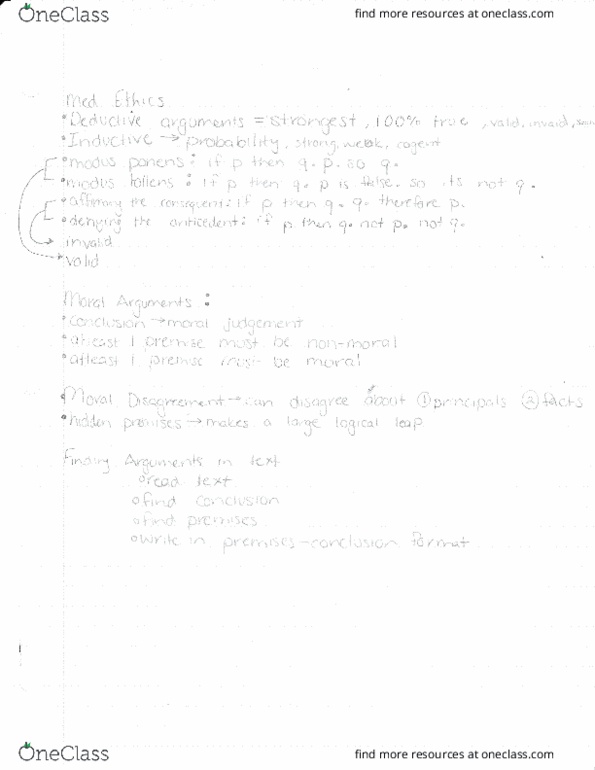 OneClass
find more resources at oneclass.com
Med. Ethics
•Deductive arguments = strongest, 100% true, valid, invalid,
•Inductive → probability, strong, weak, cogent
•modus ponens: if p then q. p. so q.
•modus tollens: if p then q. p is false. so its not q.
•affirming the consequent: if p then q. q. therefore p.
•denying the anticedent: if p then q. not p. not q.
invalid
valid
Moral Arguments:
•conclusion → moral judgement
•atleast 1 premise must be non-moral
•atleast 1 premise must be moral
•Moral Disagreement → can disagree about ① principals ② facts
•hidden premises → makes a large logical leap
Finding Arguments in text
o read text
o find conclusion
o find premises
o write in premises-conclusion format
OneClass
find more resources at oneclass.com